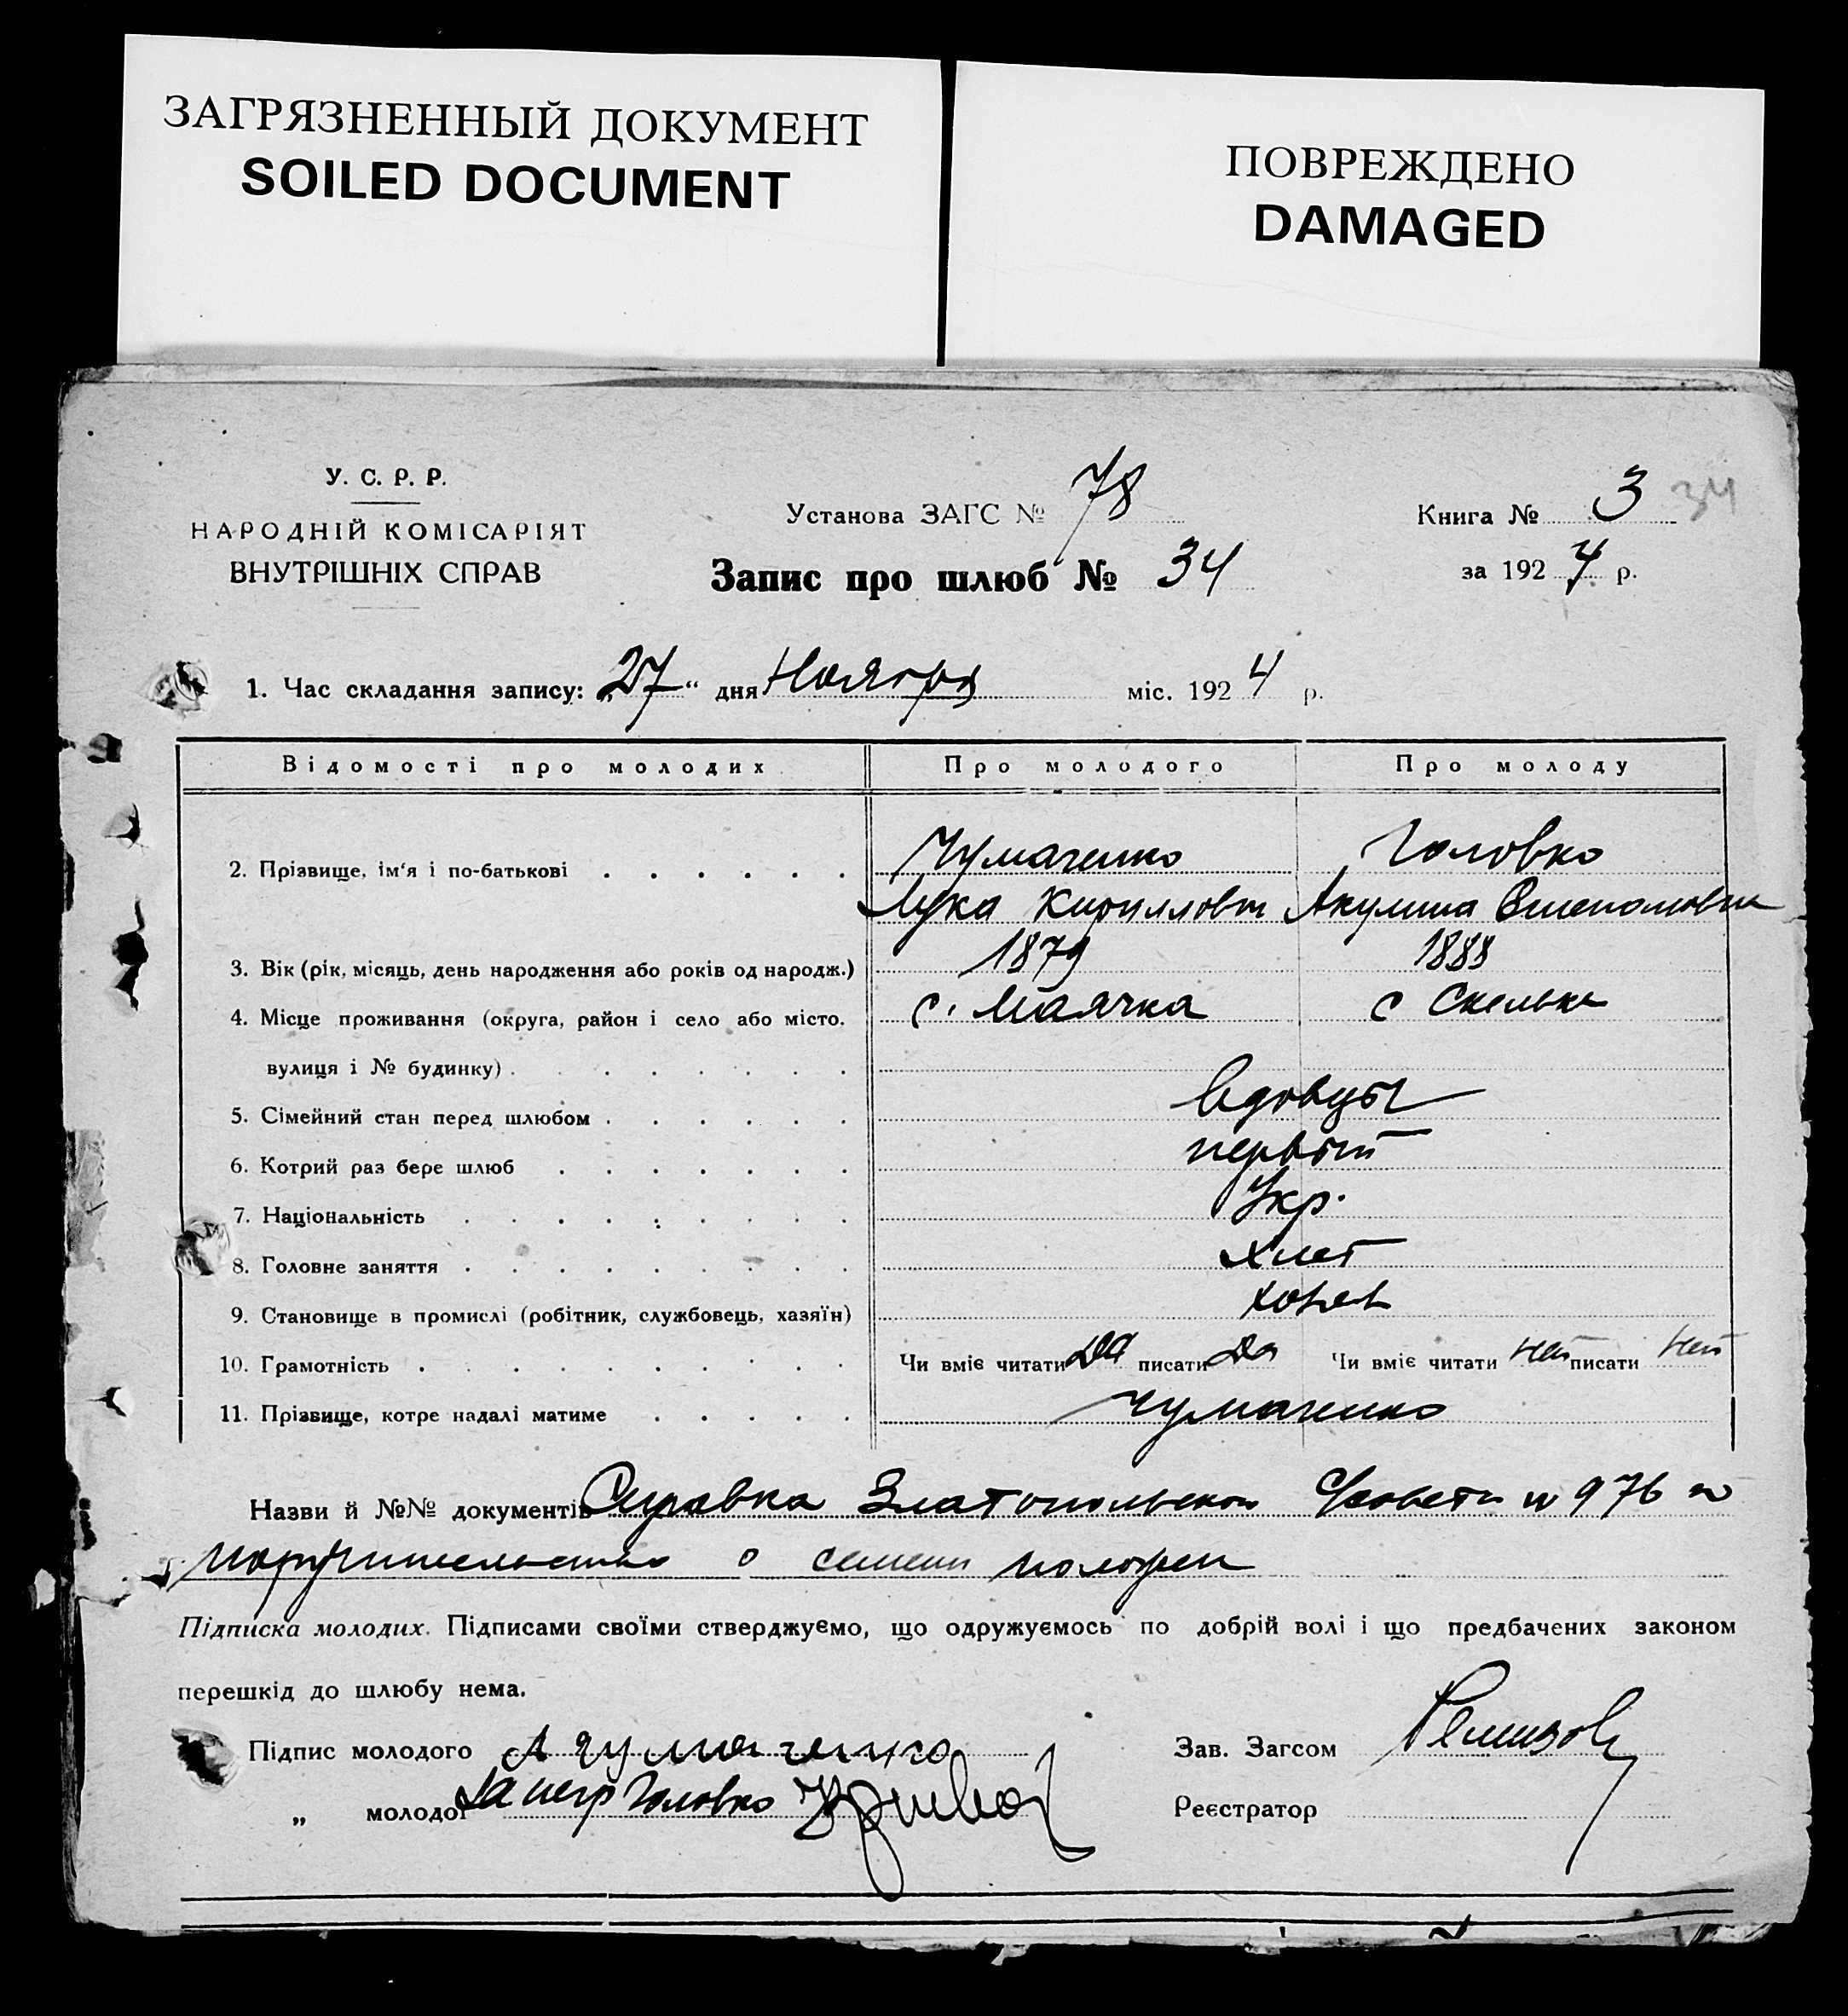 ЗАГРЯЗНЕННЫЙ ДОКУМЕНТ
SOILED DOCUMENT
ПОВРЕЖДЕНО
DAMAGED
У. С. Р. Р.
НАРОДНІЙ КОМІСАРІЯТ
ВНУТРІШНІХ СПРАВ
Установа ЗАГС № 78
Запис про шлюб № 34
Книга № 3 34
за 1924 р.
1. Час складання запису: „27“ дня Ноября міс. 1924 р.
Відомості про молодих Про молодого Про молоду
Чумаченко Головко
2. Прізвище, ім'я і по-батькові
Лука Кириллович Акулина
3. Вік (рік, місяць, день народження або років од народж.) 1879 1888
4. Місце проживання (округа, район і село або місто. с. Маячка с Скельки
вулиця і № будинку)
5. Сімейний стан перед шлюбом вдовцы
6. Котрий раз бере шлюб первый
7. Національність Укр.
8. Головне заняття хлеб
9. Становище в промислі (робітник, службовець, хазяїн)
10. Грамотність Чи вміє читати да писати да Чи вміє читати нет писати нет
11. Прізвище, котре надалі матиме Чумаченко
Назви й №№ документів Справка Златопольской 976
о семейн полож
Підписка молодих. Підписами своїми стверджуємо, що одружуємось по добрій волі і що предбачених законом
перешкід до шлюбу нема.
Підпис молодого Чумаченко Зав. Загсом
„ молодої За негр Головко Реєстратор